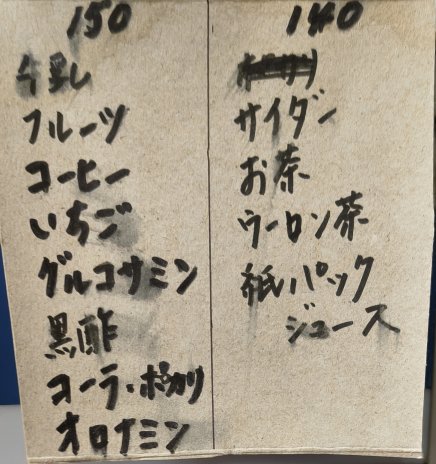 150
牛乳
フルーツ
コーヒー
いちご
グルコサミン
黒酢
コーラ・ポカリ
オロナミン
140
サイダー
お茶
ウーロン茶
紙パック
ジュース